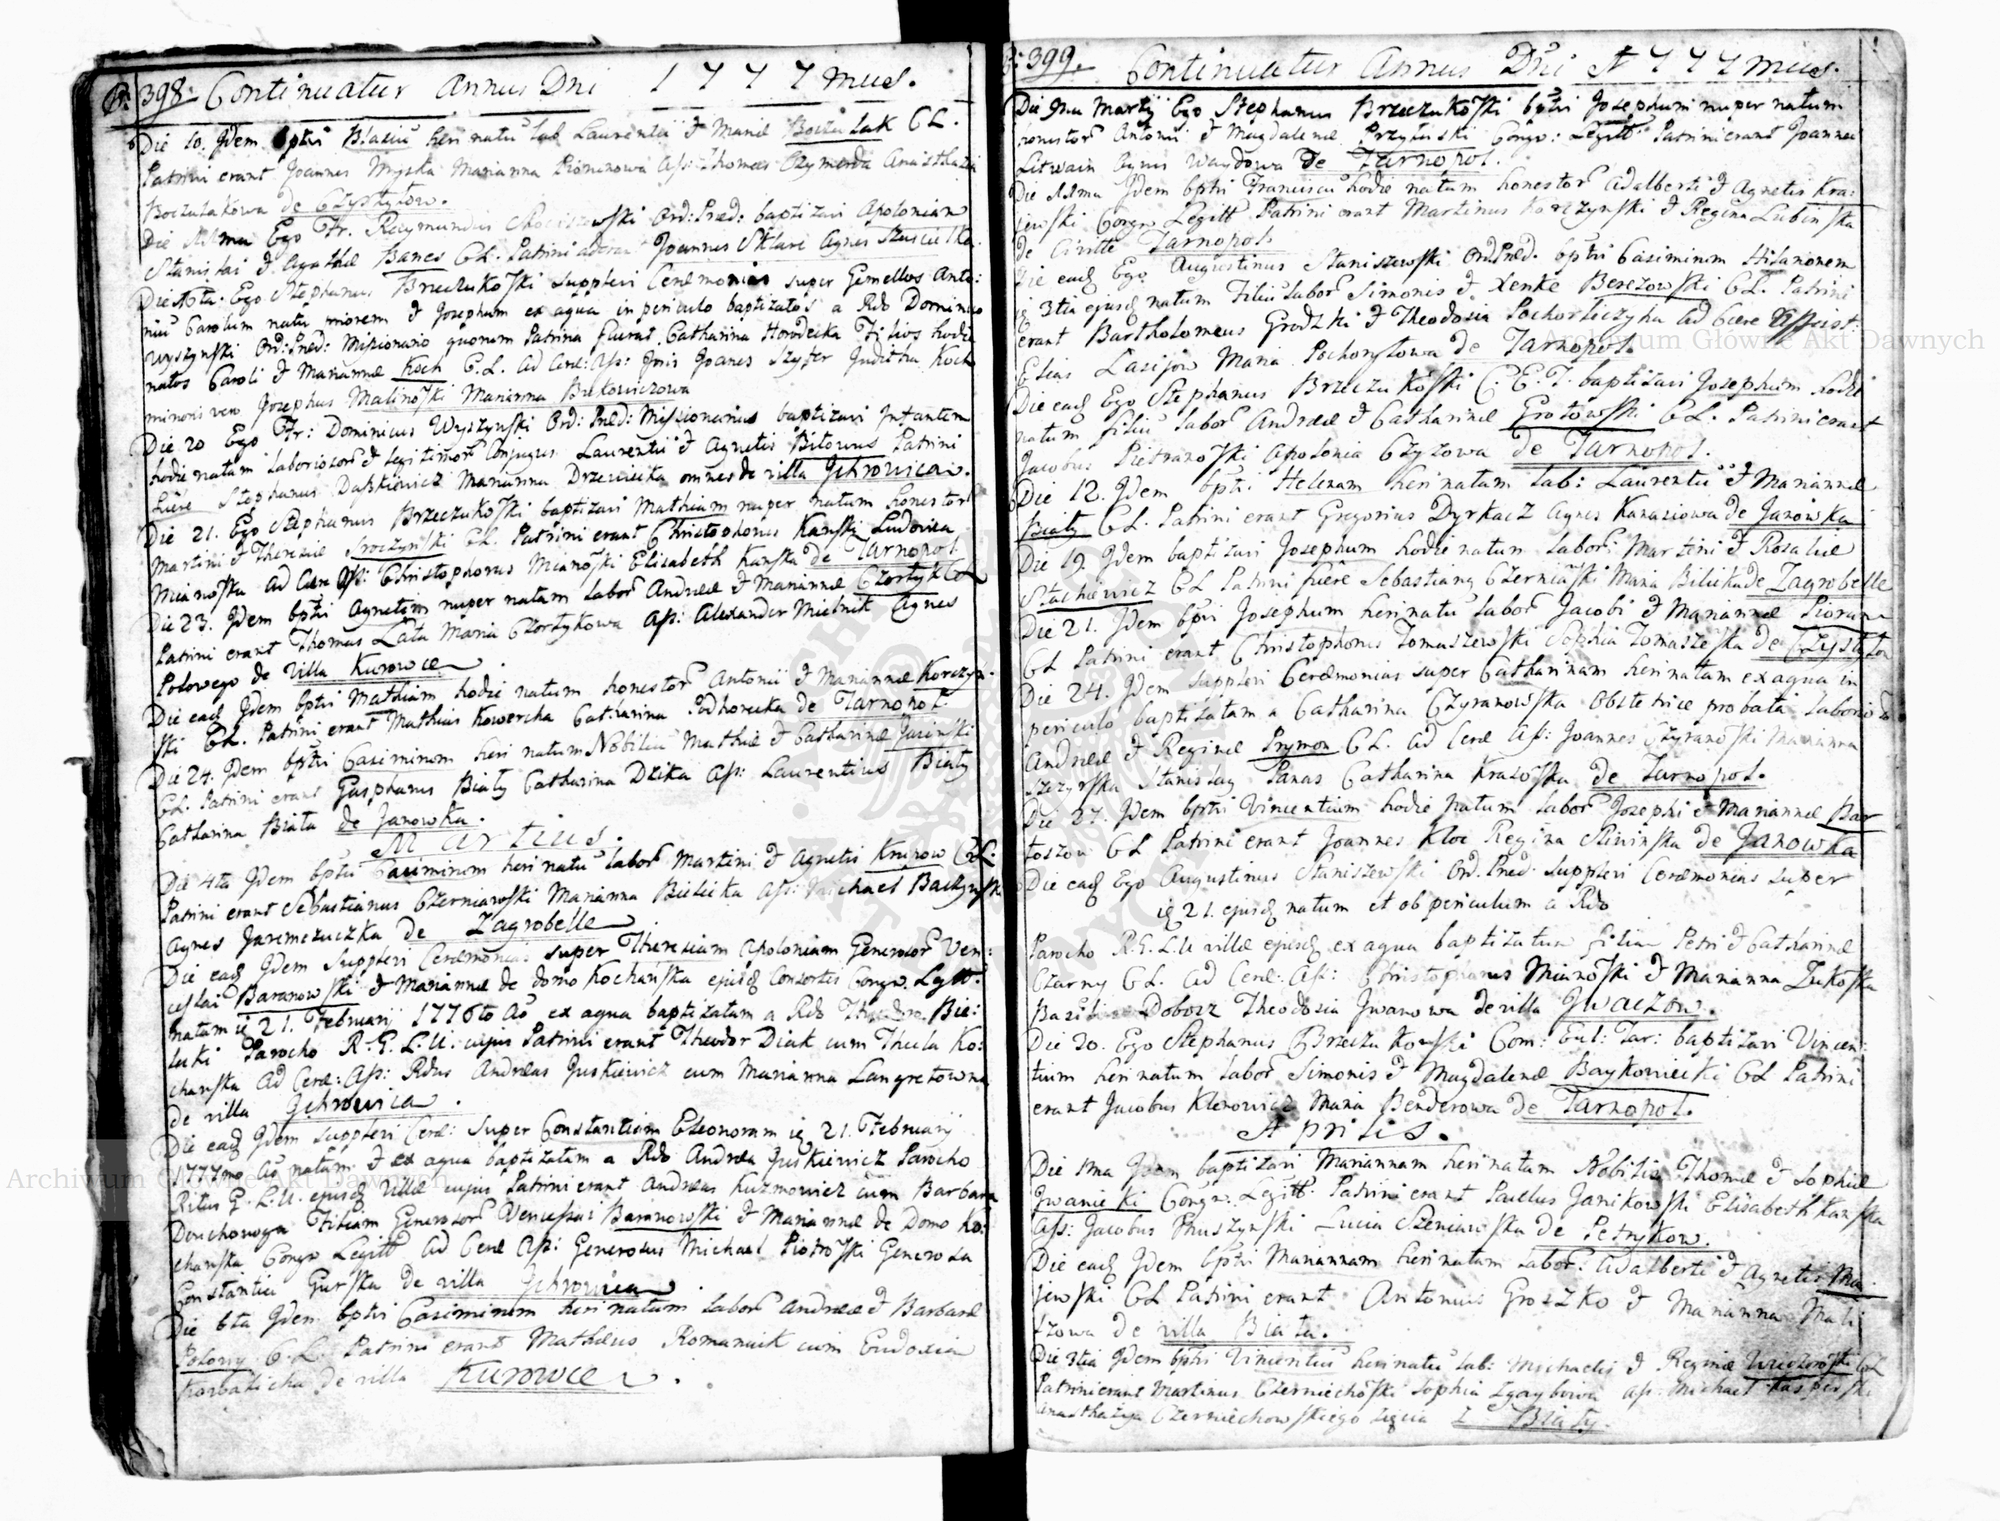 P: 398. Continuatur Annus Dni 1777mus.
Die 10. Idem bptvi Blasiu heri natu lab Laurentii & Mariae Boczulak CL.
Patrini erant Joannes Myska Marianna Ass: Thomas Czymerda Anasthazia
Boczulakowa de Czystyłow.
Die Ego Fr. Raymundus Ord: Præd: baptizavi Apoloniam
Stanislai & Agathæ Banas CL. Patrini Joannes Sklarz Agnes
Die Ego Stephanus Brzeczukoski supplevi Ceremonias super Gemellos Anto:
niu Carolum natu & Josephum ex aqua in periculo baptizatos a Rdo Dominico
Wyszynski Ord: Præd: Misionario quorum Patrina fuerat Catharina Horodecka Filios hodie
natos Caroli & Mariannæ Koch C.L. Ad Cere: Ass: Joanes Szyfer Juditha Koch
minoris vero Josephus Malinoski Marianna Bukowiczowa
Die 20 Ego Fr: Dominicus Wyszynski Ord: Præd: Missionarius baptizavi Infantem
hodie natum laboriosor & legitimor Conjugu Laurentii & Agnetis Bilowus Patrini
fuere Stephanus Daszkiewicz Marianna Drzewiecka omnes de villa Jchrowica.
Die 21. Ego Stephanus Brzeczukoski baptizavi Mathiam nuper natum honestor
Martini & Theresiæ Sroczynski CL. Patrini erant Christophorus Kanski Ludovica
Mianoska ad Cere Ass: Christophorus Mianoski Elisabeth Kanska de Tarnopol
Die 23. Idem bptvi Agnetem nuper natam labor Andreæ & Mariannæ Czortyk CL
Patrini erant Thomas Lata Maria Czortykowa Ass: Alexander Mielnik Agnes
Polowego de villa Kurowce.
Die eadq Idem bptvi Mathiam hodie natum honestor Antonii & Mariannæ Korczyn:
ski CL. Patrini erant Mathias Kowercha Catharina Podhorecka de Tarnopol
Die 24. Idem bptvi Casimirum heri natum Nobiliu Mathiæ & Catharinæ Jasinski
CL. Patrini erant Gasparus Biały Catharina Dzika Ass: Laurentius Biały
Catharina Biała de Janowka.
Martius.
Die 4ta Idem bptvi Casimirum heri natu labor Martini & Agnetis Krupow CL:
Patrini erant Sebastianus Czerniawski Marianna Bielecka Ass: Michael Baczynski
Agnes Jaremczuczka de Zagrobelle
Die eadq Idem supplevi Ceremonias super Theresiam Apoloniam Generosor Ven:
ceslai Baranowski & Mariannæ de domo Kochanska ejusq Consortis Congu. Legtt.
natam ie 21. Februarij 1776to Ao ex aqua baptizatam a Rdo Theodoro Bie:
lecki Parocho R. G. L. U. cujus Patrini erant Theodor Diak cum Thecla Ko:
chanska Ad Cere: Ass: Rdus Andreas Juskiewicz cum Marianna Langretowna
de villa Jchrowica.
Die eadq Idem supplevi Cere: super Constantiam Eleonoram ie 21. Februarij
1777mo Ao natam & ex aqua baptizatam a Rdo Andrea Juskiewicz Parocho
Ritus G. L. U. ejusq villæ cujus Patrini erant Andreas Kuzmowicz cum Barbara
Filiam Generosor Venceslai Baranowski & Mariannæ de Domo Ko:
chanska Congu Legitt Ad Cere Ass: Generosus Michael Piotroski Generosa
Constantia Gurska de villa Jchrowica.
Die 6ta Idem bptvi Casimirum heri natum labor Andreæ & Barbaræ
Polowy C.L. Patrini erant Mathæus Romaniuk cum Eudoxia
de villa Kurowce.
P: 399. Continuatur Annus Dni 1777mus.
Die Martij Ego Stephanus Brzeczukoski bptvi Josephum nuper natum
honestor Antonii & Magdalenæ Congu: Legitt Patrini erant Joannes
Litwain Agnes Waydowa de Tarnopol.
Die Idem bptvi Franciscu hodie natum honestor Adalberti & Agnetis Kra:
jewski Congu Legitt Patrini erant Martinus Korczynski & Regina Lubinska
de Civitte Tarnopol.
Die eadq Ego Augustinus Staniszewski Ord. Præd. bptvi Casimirum
ie 3tia ejusq natum Filiu labor Simonis & Xenke Berezowski CL. Patrini
erant Bartholomeus Grodzki & Theodosia Pochorliczyha ad Cere Assist:
Elias Lasijow Maria Pochorylowa de Tarnopol.
Die eadq Ego Stephanus Brzeczukoski C. E. T. baptizavi Josephum hodie
natum filiu labor Andreæ & Catharinæ Grotowski CL. Patrini erant
Jacobus Pietranoski Apolonia Czyzowa de Tarnopol.
Die 12. Idem bptvi Helenam heri natam lab: Laurentii & Mariannæ
Biały CL. Patrini erant Gregorius Dyrkacz Agnes Kanasiowa de Janowka
Die 19. Idem baptizavi Josephum hodie natum labor Martini & Rosaliæ
Stachiewicz CL Patrini fuere Sebastianq Czerniaski Maria Bilicka de Zagrobelle
Die 21. Idem bptvi Josephum heri natu labor Jacobi & Mariannæ Piorun
CL Patrini erant Christophorus Tomaszewski Sophia Tomaszeska de Czystyłow
Die 24. Idem supplevi Ceremonias super Catharinam heri natam ex aqua in
periculo baptizatam a Catharina Czyranowska obstetrice probata laborioso
Andreæ & Reginæ Prymon CL. ad Cere Ass: Joannes Czyranoski Marianna
Stanislaq Panas Catharina Krasoska de Tarnopol.
Die 27. Idem bptvi Vincentium hodie natum labor Josephi & Mariannæ Bar
toszow CL Patrini erant Joannes Kloc Regina Sliwinska de Janowka
Die eadq Ego Augustinus Staniszewski Ord. Præd. supplevi Ceremonias super
ie 21. ejusq natum et ob periculum a Rdo
Parocho R. G. L. U villæ ejusq ex aqua baptizatu filiu Petri & Catharinæ
Czarny CL. ad Cere: Ass: Christophorus Mianoski & Marianna Zukoska
Basilius Dobosz Theodosia Iwanowa de villa Iwaczow.
Die 30. Ego Stephanus Brzeczukowski Com: Eccl: Tar: baptizavi Vincen:
tium heri natum labor Simonis & Magdalenæ Baykowiecki CL Patrini
erant Jacobus Klenowicz Maria Benderowa de Tarnopol.
Aprilis.
Die 1ma Idem baptizavi Mariannam heri natam Nobiliu Thomæ & Sophiæ
Iwanicki Congu. Legitt. Patrini erant Paulus Janikowski Elisabeth Kanska
Ass: Jacobus Pruszynski Lucia Szeniawska de Petrykow.
Die eadq Idem bptvi Mariannam heri natam labor. Adalberti & Agnetis Ma:
jewski CL Patrini erant Antonius Groszko & Marianna Mali
szowa de villa Biała.
Die 3tia Idem bptvi Vincentiu heri natu lab: Michaelis & Reginæ CL
Patrini erant Martinus Czerniechoski Sophia Ass: Michael Kasperski
Anasthazya Czerniechowskiego z Biały.
Archiwum Główne Akt Dawnych
Archiwum Główne Akt Dawnych